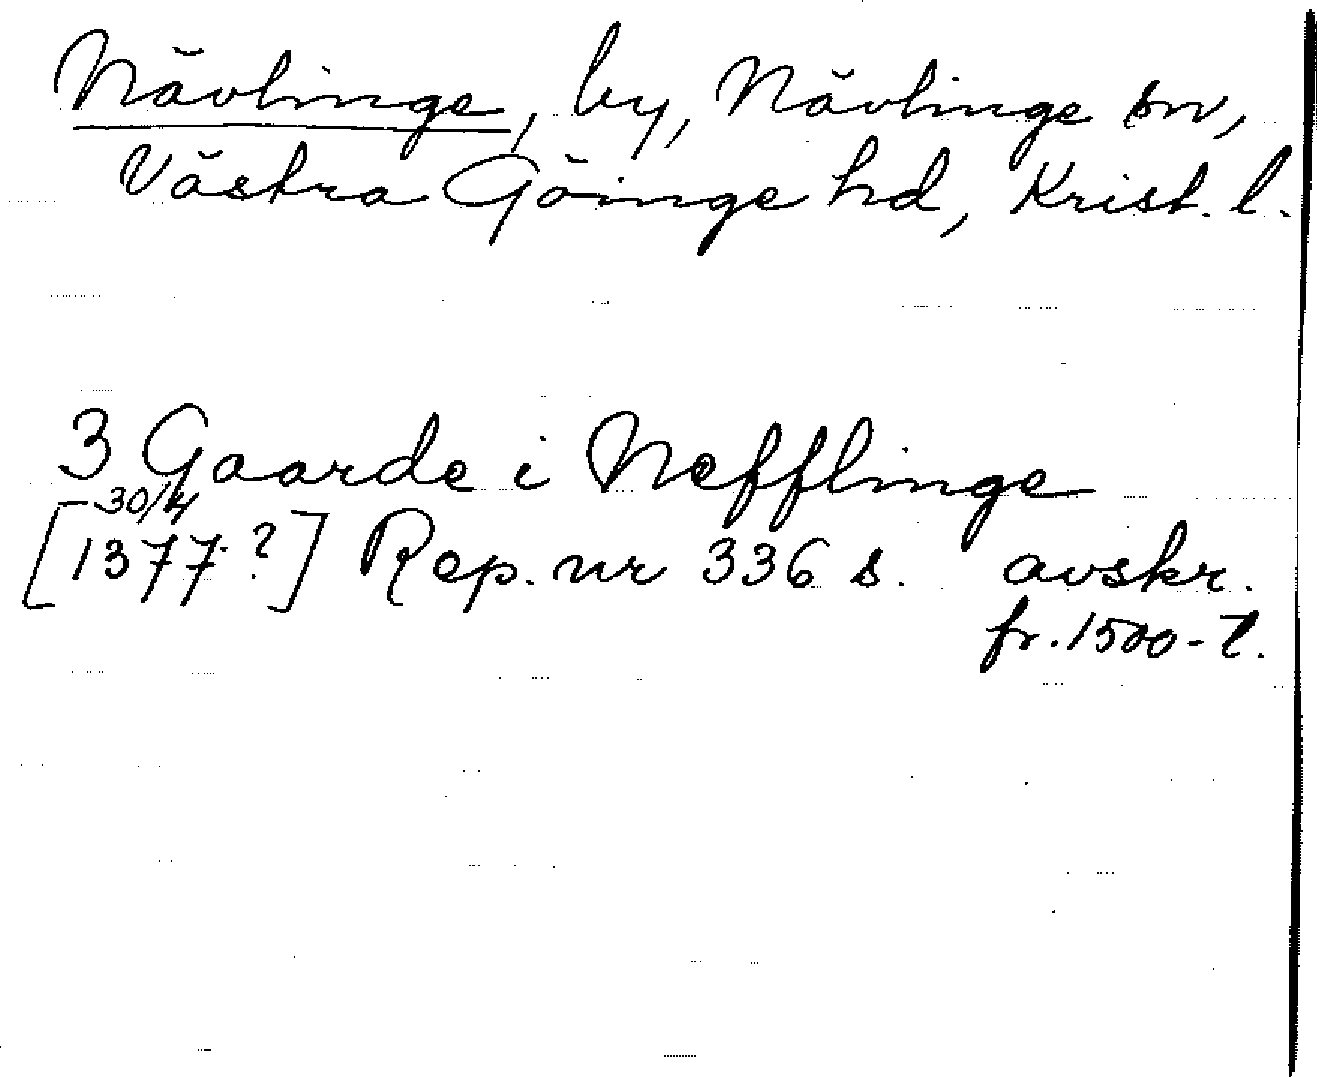 Nävlinge, by, Nävlinge sn,
Västra Göinge hd, Krist. l.
3 Gaarde i Nefflinge
30/4
[1377?] Rep. nr 336 s. avskr.
fr. 1500-t.